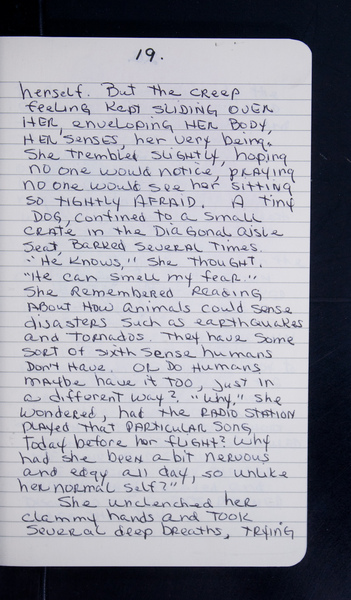 19.
herself. But the creep
feeling kept sliding over
her, enveloping her body,
her senses, her very being.
She trembled slightly, hoping
no one would notice, praying
no one would see her sitting
so tightly afraid. A tiny
dog, confined to a small
crate in the diagonal aisle
seat, barked several times.
"He knows," she thought.
"He can smell my fear."
She remembered reading
about how animals could sense
disasters such as earthquakes
and tornados. They have some
sort of sixth sense humans
don't have. Or do humans
maybe have it too, just in
a different way? "Why," she
wondered, had the radio station
played that particular song
today before her flight? Why
had she been a bit nervous
and edgy all day, so unlike
her normal self?"
She unclenched her
clammy hands and took
several deep breaths, trying